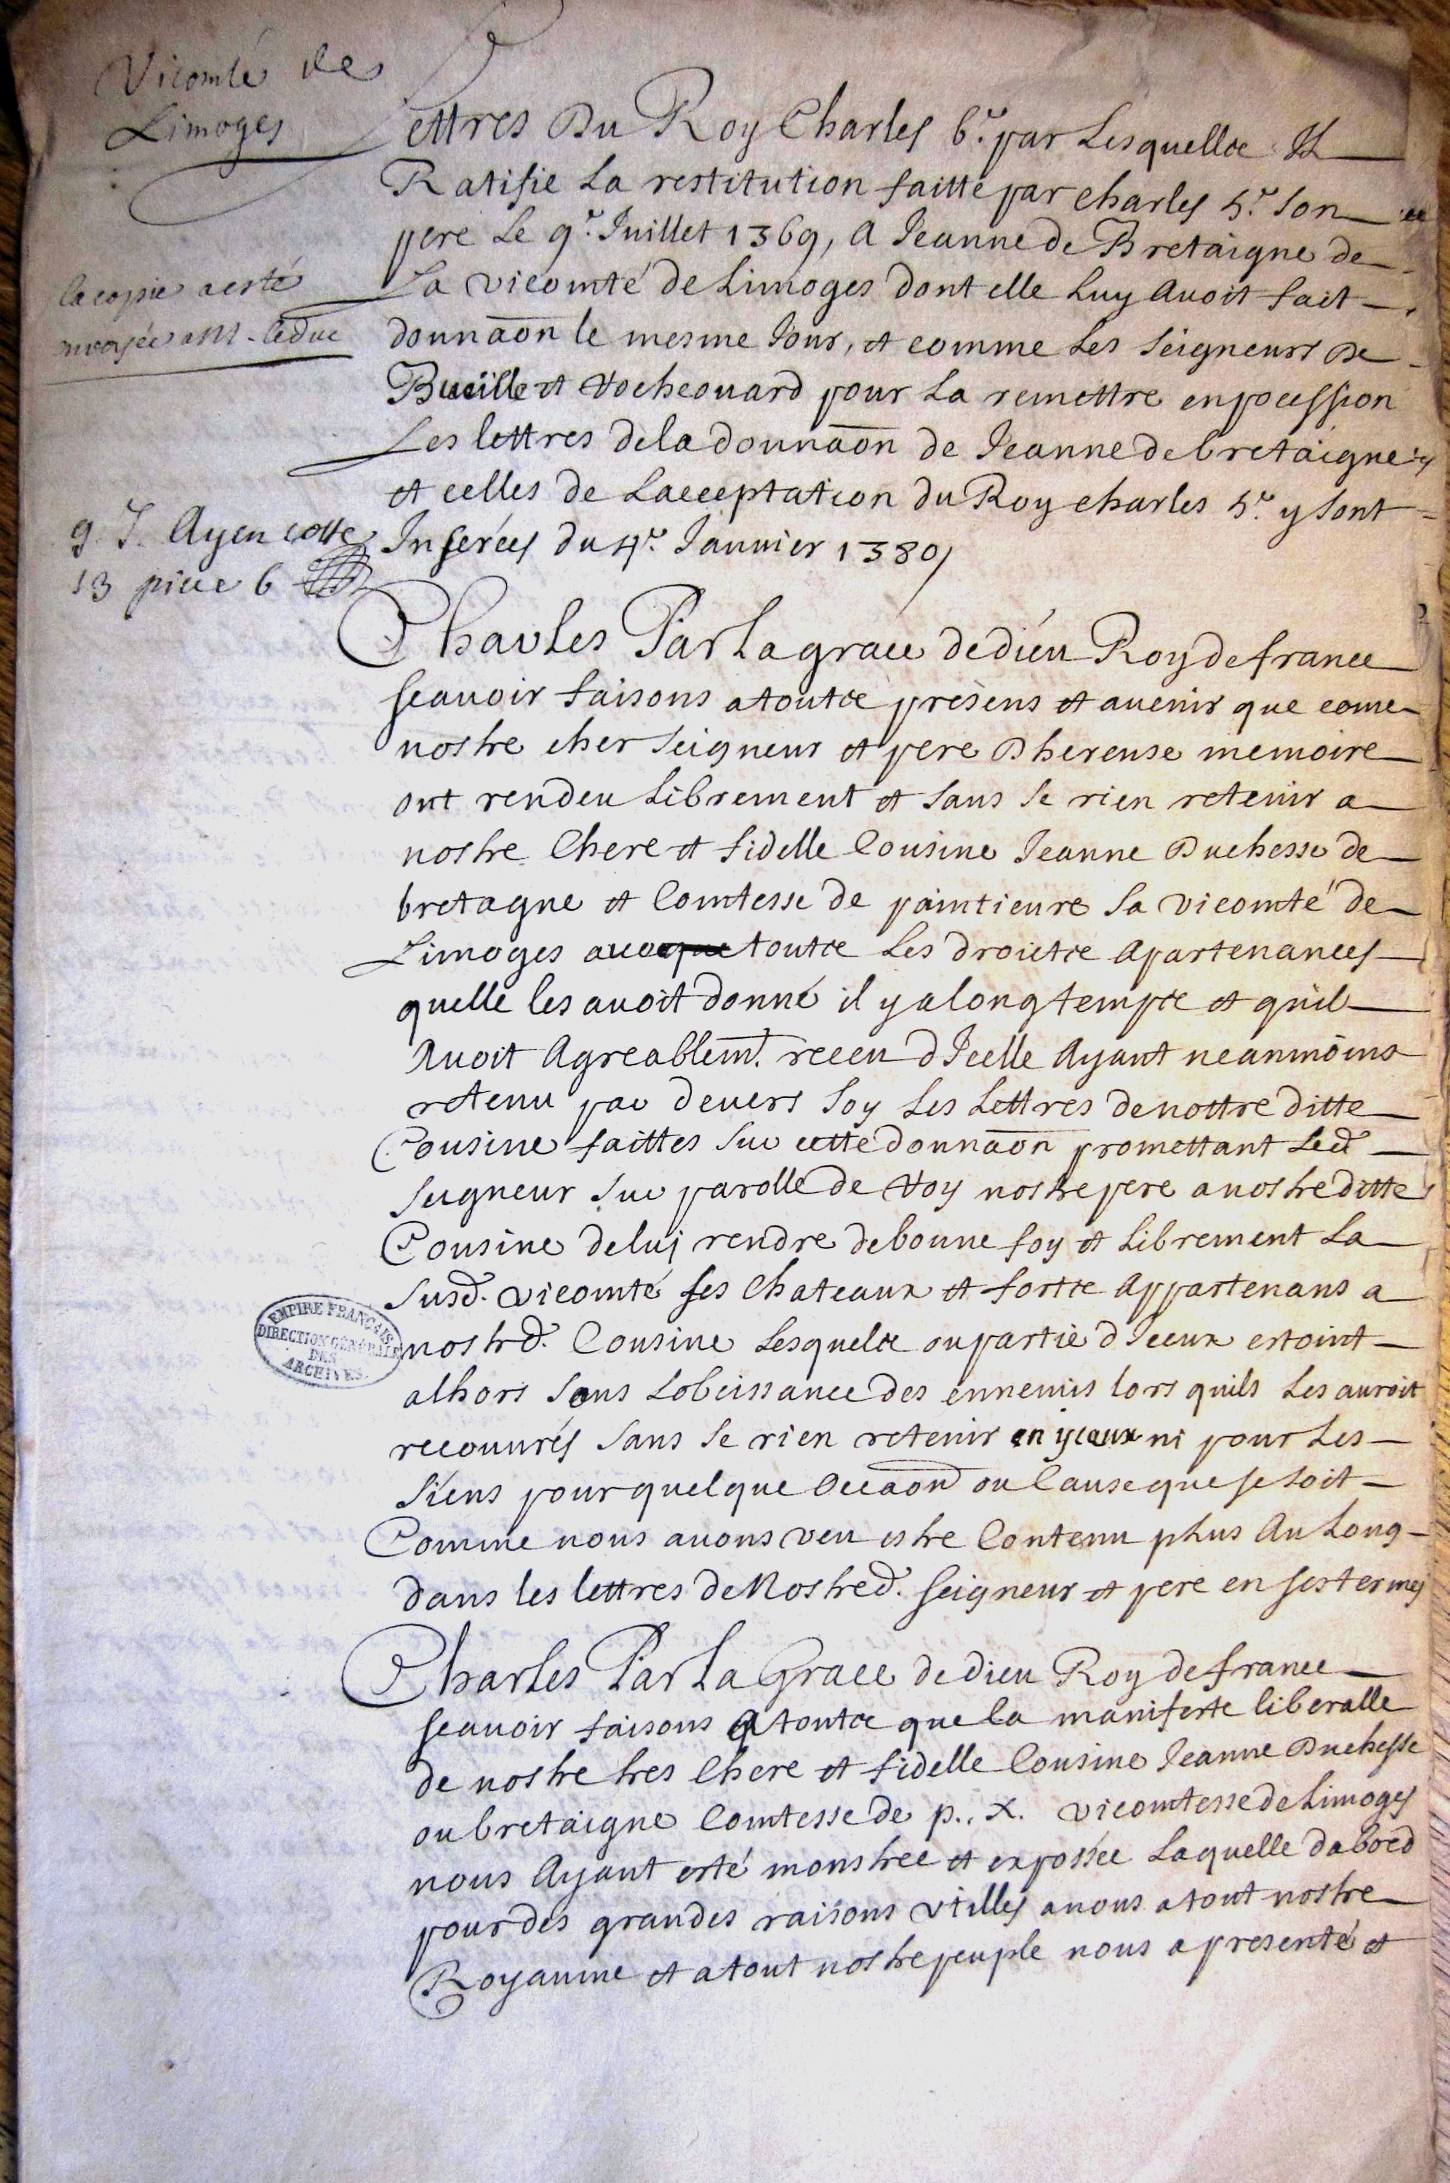 Vicomté de
Limoges
la copie a esté
envoyée a M. le duc
9. J. Ayen cotte
13 piece 6
Lettres Du Roy Charles 6.e par Lesquelles Il
Ratifie La restitution faitte par Charles 5.e Son
pere Le 9.e Juillet 1369, A Jeanne de Bretaigne de
La vicomté de Limoges dont elle Luy Avoit fait
donnaõn le mesme Jour, et comme Les Seigneurs De
Bueille et Rocheouard pour La remettre en pocession
Les lettres de la donnaõn de Jeanne de bretaigne
et celles de Lacceptation du Roy Charles 5.e y sont
Inserées du 4.e Januier 1380
Charles Par La grace de dieu Roy de france
scauoir faisons a toutes presens et auenir que come
nostre cher Seigneur et pere Dhereuse memoire
ont rendeu Librement et Sans Se rien retenir a
nostre Chere et fidelle Cousine Jeanne Duchesse de
bretagne et Comtesse de paintieure Sa vicomté de
Limoges auec toutes Les droictes Apartenances
quelle les auoit donné il y a longtempts et quil
Auoit Agreablem.t receu dIcelle Ayant neanmoins
retenu par deuers Soy Les Lettres de nottre ditte
Cousine faittes Sur cette donnaõn promettant Led
Seigneur Sur parolle de Roy nostre pere a nostre ditte
Cousine de luj rendre de bonne foy et Librement La
Susd. vicomté ses Chateaux et fortes Appartenans a
nostrd. Cousine Lesqueles ou partie dIceux estoint
alhors Sous Lobeissance des ennemis lors quils Les auroit
recouurés Sans Se rien retenir en yceux ni pour Les
Siens pour quelque Occaõn ou Cause que se soit
Comme nous auons veu estre Contenu plus Au Long
dans les lettres de Nostred. Seigneur et pere en ses termes
EMPIRE FRANÇAIS
DIRECTION GÉNÉRALE
DES
ARCHIVES.
Charles Par La Grace de dieu Roy de france
scauoir faisons a toutes que la manifeste liberalle
de nostre tres Chere et fidelle Cousine Jeanne Duchesse
ou bretaigne Comtesse de p.. x. vicomtesse de Limoges
nous Ayant esté monstree et expossée Laquelle dabord
pour des grandes raisons vtilles a nous a tout nostre
Royaume et a tout nostre peuple nous a presenté et